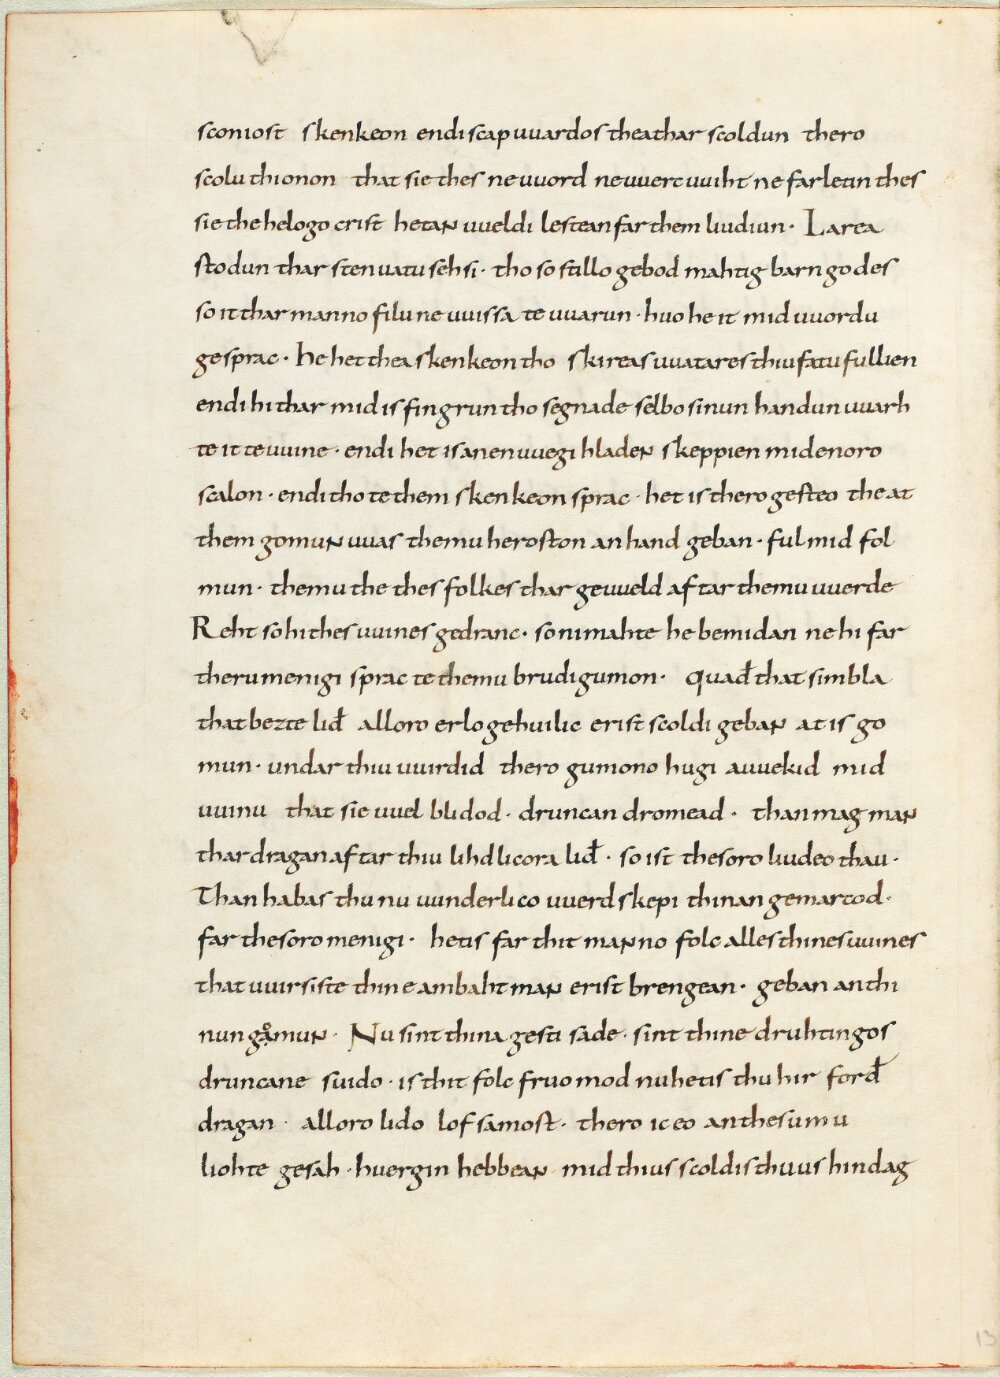 sconiost skenkeon endi scapuuardos thea thar scoldun thero
scolu thionon that sie thes ne uuord ne uuerc uuiht ne farletin thes
sie the helogo crist hetan uueldi lestean far them liudiun · Larea
stodun thar stenuatu sehsi · tho so stillo gebod mahtig barn godes
so it thar manno filu ne uuissa te uuarun · huo he it mid uuordu
gesprac · he het thea skenkeon tho skireas uuatares thiu fatu fullien
endi hi thar mid is fingrun tho segnade selbo sinun handun uuarh
te it te uuine · endi het is an en uuegi hladen skeppien mid enoro
scalon · endi tho te them skenkeon sprac · het is thero gesteo the at
them gomun uuas themu heroston an hand geban · ful mid fol
mun · themu the thes folkes thar geuueld aftar themu uuerde
Reht so hi thes uuines gedranc · so ni mahte he bemidan ne hi far
theru menigi sprac te themu brudigumon · quađ that simbla
that bezte liđ alloro erlo gehuilic erist scoldi geban at is go
mun · undar thiu uuirdid thero gumono hugi auuekid mid
uuinu that sie uuel blidod · druncan dromead · than mag man
thar dragan aftar thiu lihdlicora liđ · so ist thesoro liudeo thau ·
Than habas thu nu uunderlico uuerdskepi thinan gemarcod ·
far thesoro menigi · hetis far thit manno folc alles thines uuines
that uuirsiste thine ambaht man erist brengean · geban an thi
nun gåmun · Nu sint thina gesti sade · sint thine druhtingos
druncane suido · is thit folc fruomod nu hetis thu hir forđ
dragan · alloro lido lofsamost · thero ic eo an thesumu
liohte gesah · huergin hebbean mid thius scoldis thu us hindag